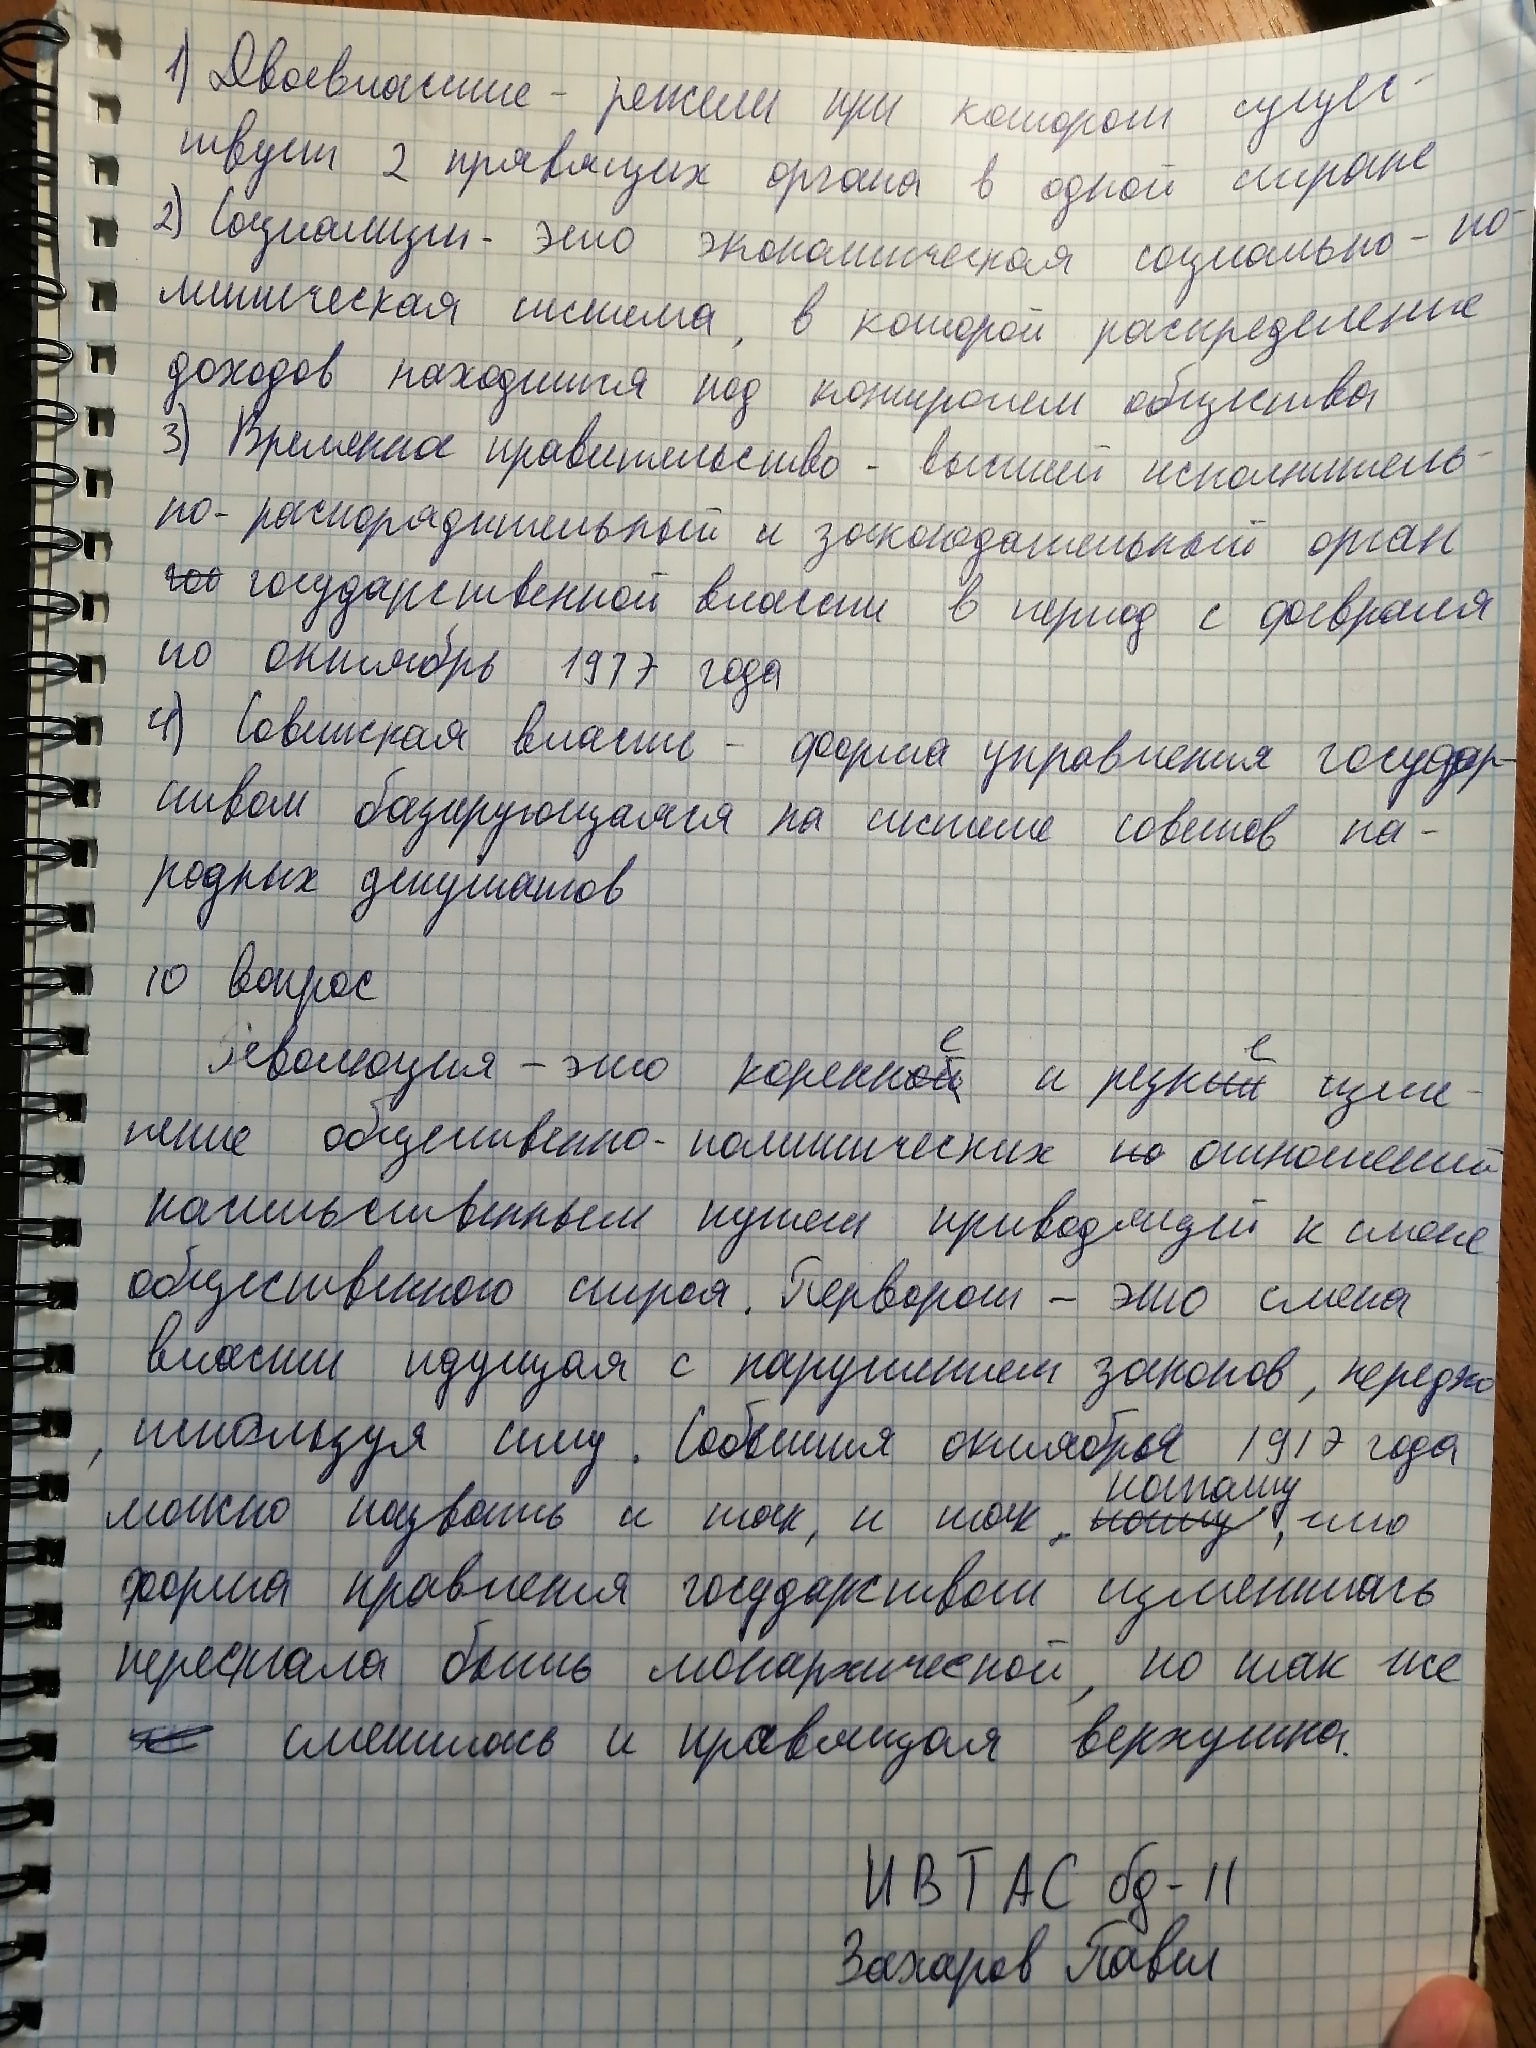 1) Двоевластие - режим при котором сущес-
твует 2 правящих органа в одной стране
2) Социализм - это экономическая социально-по-
литическая система, в которой распределение
доходов находится под контролем общества
3) Временное правительство - высший исполнитель-
но-распорядительный и законодательный орган
гос государственной власти в период с февраля
по октябрь 1917 года
4) Советская власть - форма управления государ-
ством базирующаяся на системе советов на-
родных депутатов
10 вопрос
Революция - это коренное и резкие изме-
нение общественно-политических но отношений
насильственным путем приводящей к смене
общественного строя. Перворот - это смена
власти идущая с нарушением законов, нередко
, используя силу. События октября 1917 года
можно назвать и так, и так, потому, что
форма правления государством изменилась
перестала быть монархической, но так же
сменилась и правящая верхушка.
ИВТАС бд-11
Захаров Павел